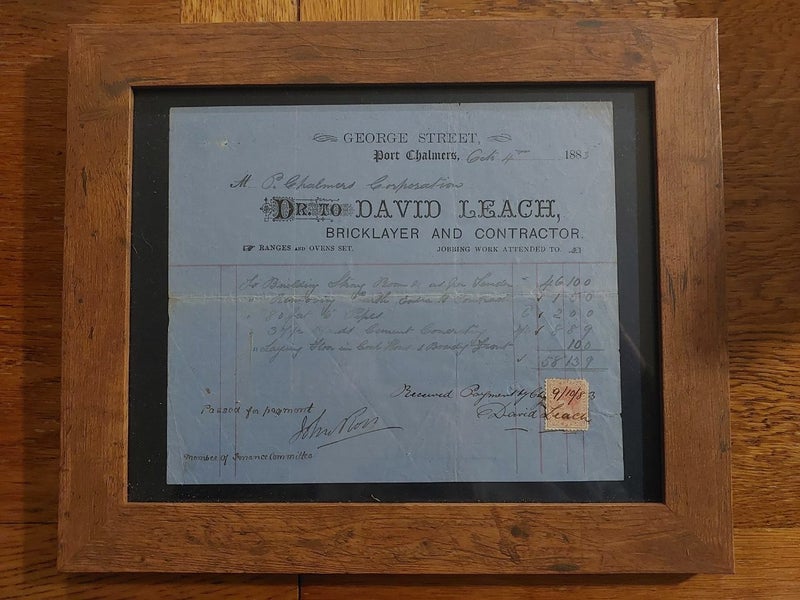 GEORGE STREET,
Port Chalmers, Octr 4th 1883
M P. Chalmers Corporation
DR. TO DAVID LEACH,
BRICKLAYER AND CONTRACTOR.
RANGES AND OVENS SET. JOBBING WORK ATTENDED TO.
To Building Strong Room &c as per Tender 46 10 0
" Removing Earth Extra to Contract 1 5 0
" 80 feet 6" Pipes 6 2 0 0
" Yards Cement Concreting 8 8 9
" Laying Floor in Coal House & Front 10 0
58 13 9
Received Payment by 9/10/83
David Leach
Passed for payment
John Ross
Member of Finance Committee